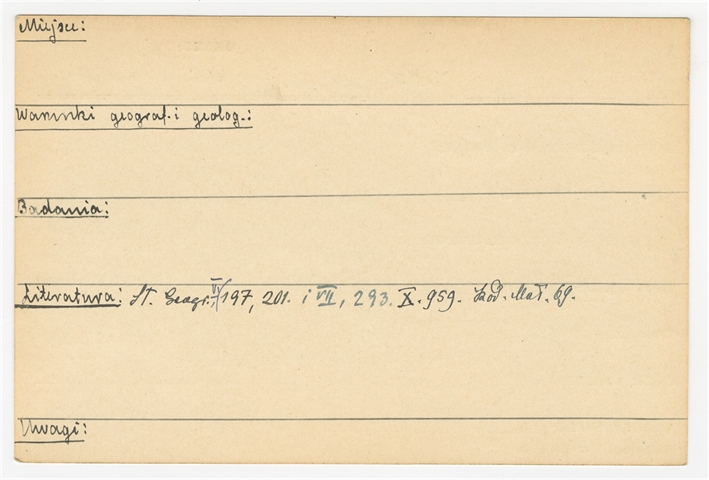 Miejsce:
Warunki geograf. i geolog.:
Badania:
Literatura: Sł. Geogr., VI/197, 201. i VII, 293. X. 959. Kod. Mat. 69.
Uwagi: